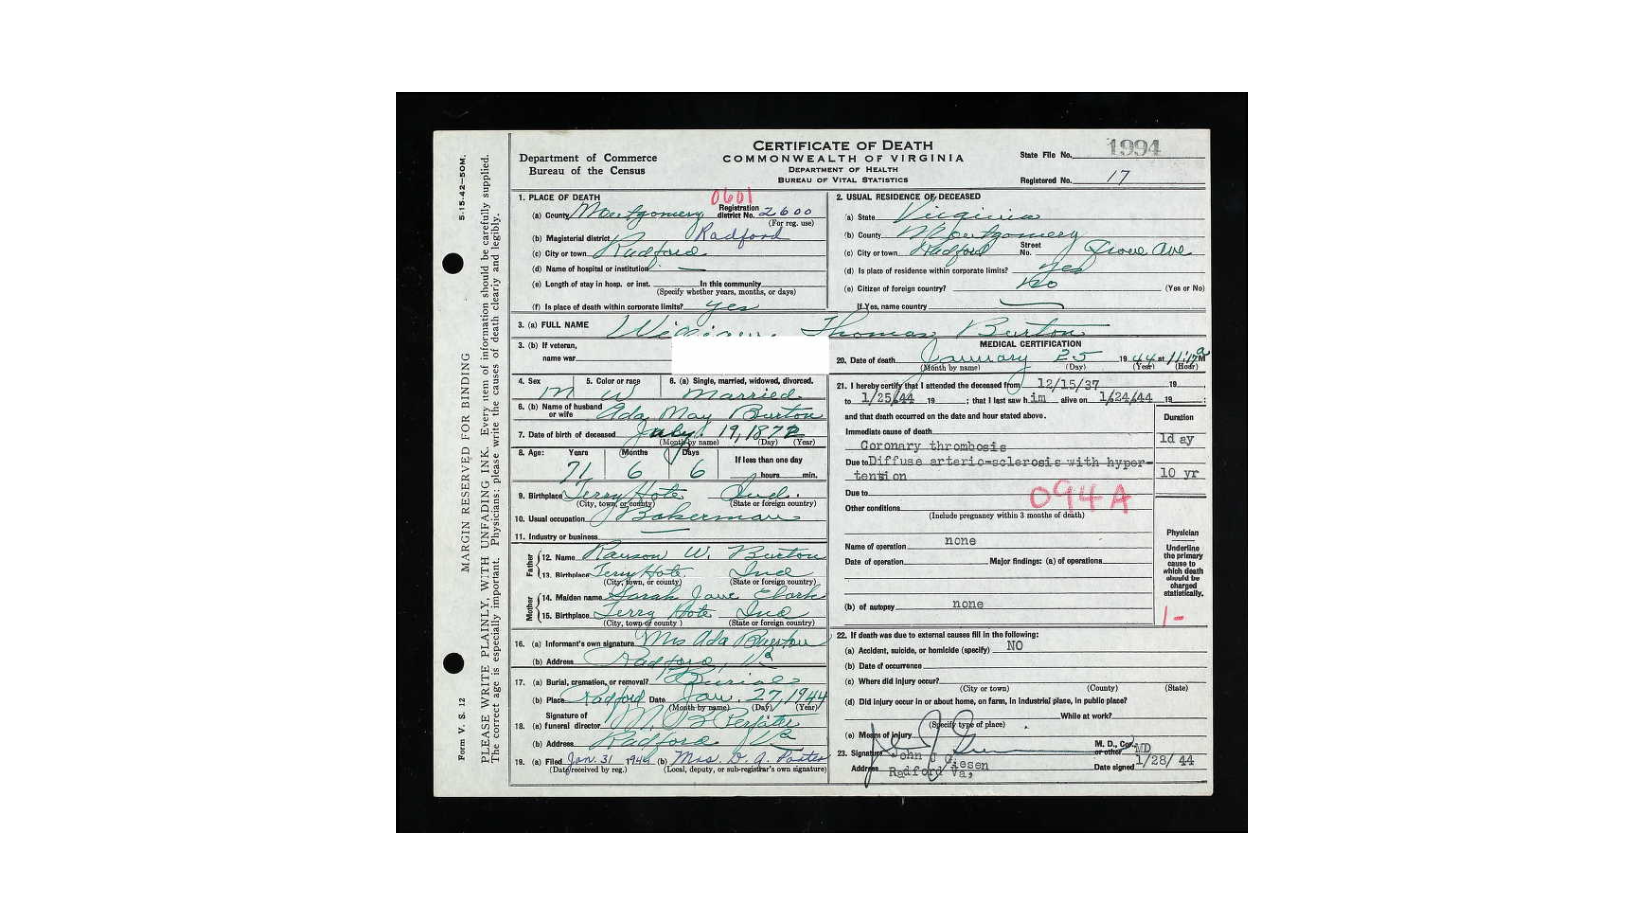 CERTIFICATE OF DEATH
COMMONWEALTH OF VIRGINIA
DEPARTMENT OF HEALTH
BUREAU OF VITAL STATISTICS
Department of Commerce
Bureau of the Census
State File No. 1994
Registered No. 17
5-15-42—50M.
MARGIN RESERVED FOR BINDING
PLEASE WRITE PLAINLY, WITH UNFADING INK. Every item of information should be carefully supplied.
The correct age is especially important. Physicians: please write the causes of death clearly and legibly.
Form V. S. 12
1. PLACE OF DEATH 0601
(a) County Montgomery Registration district No. 2600
(For reg. use)
(b) Magisterial district Radford
(c) City or town Radford
(d) Name of hospital or institution —
(e) Length of stay in hosp. or inst. In this community
(Specify whether years, months, or days)
(f) Is place of death within corporate limits? yes
2. USUAL RESIDENCE OF DECEASED
(a) State Virginia
(b) County Montgomery
(c) City or town Radford Street No. Grove Ave
(d) Is place of residence within corporate limits? yes
(e) Citizen of foreign country? No (Yes or No)
If Yes, name country
3. (a) FULL NAME William Thomas Burton
3. (b) If veteran,
name war
4. Sex M
5. Color or race W
6. (a) Single, married, widowed, divorced. Married
6. (b) Name of husband or wife Ada May Burton
7. Date of birth of deceased July 19, 1872
(Month by name) (Day) (Year)
8. Age: Years 71 Months 6 Days 6 If less than one day
hours min.
9. Birthplace Terry Hote Ind.
(City, town, or county) (State or foreign country)
10. Usual occupation Bakerman
11. Industry or business
Father
12. Name Ranson W. Burton
13. Birthplace Terry Hote Ind
(City, town, or county) (State or foreign country)
Mother
14. Maiden name Sarah Jane Clark
15. Birthplace Terry Hote Ind
(City, town or county) (State or foreign country)
16. (a) Informant's own signature Mrs Ada Burton
(b) Address Radford, Va
17. (a) Burial, cremation, or removal? Burial
(b) Place Radford Date Jan. 27, 1944
(Month by name) (Day) (Year)
Signature of
18. (a) funeral director M. B.
(b) Address Radford Va
19. (a) Filed Jan. 31 1944 (b) Mrs. D. A. Porter
(Date received by reg.) (Local, deputy, or sub-registrar's own signature)
MEDICAL CERTIFICATION
20. Date of death January 25 1944 at 11:17 a M
(Month by name) (Day) (Year) (Hour)
21. I hereby certify that I attended the deceased from 12/15/37 19
to 1/25/44 19 ; that I last saw him alive on 1/24/44 19 ;
and that death occurred on the date and hour stated above.
Duration
Immediate cause of death
Coronary thrombosis 1d ay
Due to Diffuse arterio-sclerosis with hyper-
tention 10 yr
Due to
094A
Other conditions
(Include pregnancy within 3 months of death)
Name of operation none
Date of operation Major findings: (a) of operations
(b) of autopsy none
Physician
Underline
the primary
cause to
which death
should be
charged
statistically.
1-
22. If death was due to external causes fill in the following:
(a) Accident, suicide, or homicide (specify) NO
(b) Date of occurrence
(c) Where did injury occur?
(City or town) (County) (State)
(d) Did injury occur in or about home, on farm, in industrial place, in public place?
While at work?
(Specify type of place)
(e) Means of injury
23. Signature John J Giesen M. D., Cor. or other MD
Address Radford Va, Date signed 1/28/ 44